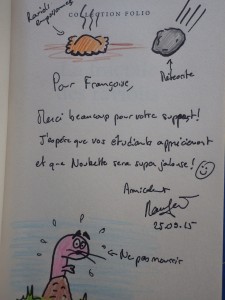 COLLECTION FOLIO
Ravioli
empoisonné
Météorite
Pour Françoise,
Merci beaucoup pour votre support!
J'espère que vos étudiants apprécieront
et que Noukette sera super jalouse!
Amicalement
25.09.15
Ne pas mourir